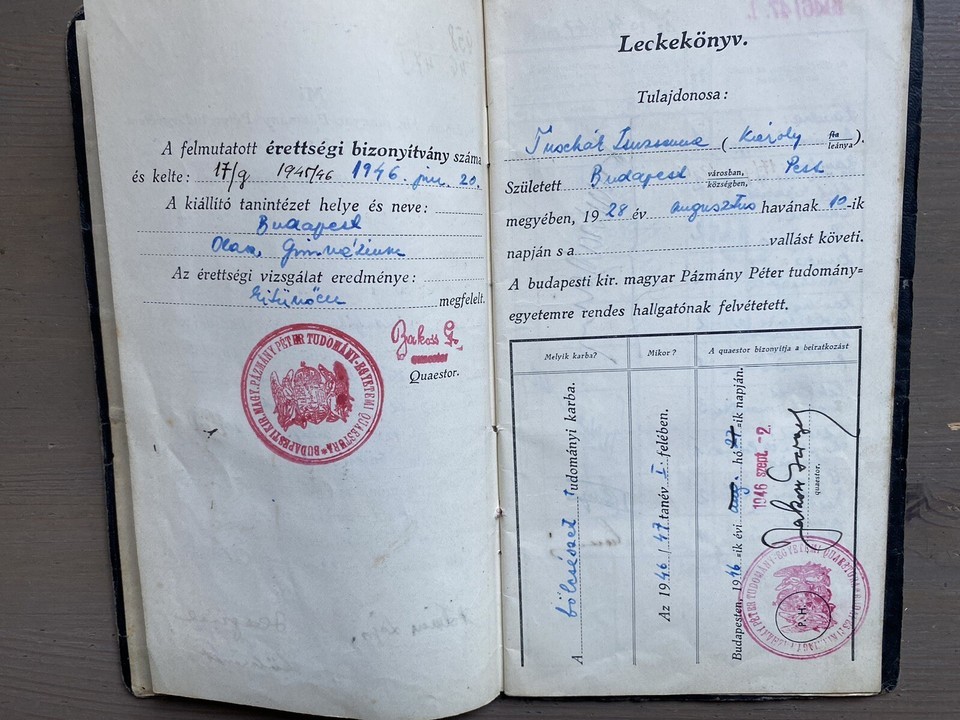 A felmutatott érettségi bizonyítvány száma
és kelte: 17/g 1945/46 1946. jun. 20.
A kiállító tanintézet helye és neve:
Budapest
Olasz Gimnázium
Az érettségi vizsgálat eredménye:
kitünően megfelelt.
BUDAPESTI KIR. MAGY. PÁZMÁNY PÉTER TUDOMÁNY-EGYETEMI QUAESTURA
quaestor
Quaestor.
Leckekönyv.
Tulajdonosa:
Zsuzsanna (Károly fia leánya).
Született Budapest városban, községben, Pest
megyében, 1928 év augusztus havának 10-ik
napján s a vallást követi.
A budapesti kir. magyar Pázmány Péter tudomány=
egyetemre rendes hallgatónak felvétetett.
Melyik karba?
Mikor?
A quaestor bizonyítja a beiratkozást
A bölcsészet tudományi karba.
Az 1946/47 tanév I. felében.
Budapesten, 1946=ik évi aug. hó 27=ik napján.
1946 szept. -2.
quaestor.
P. H.